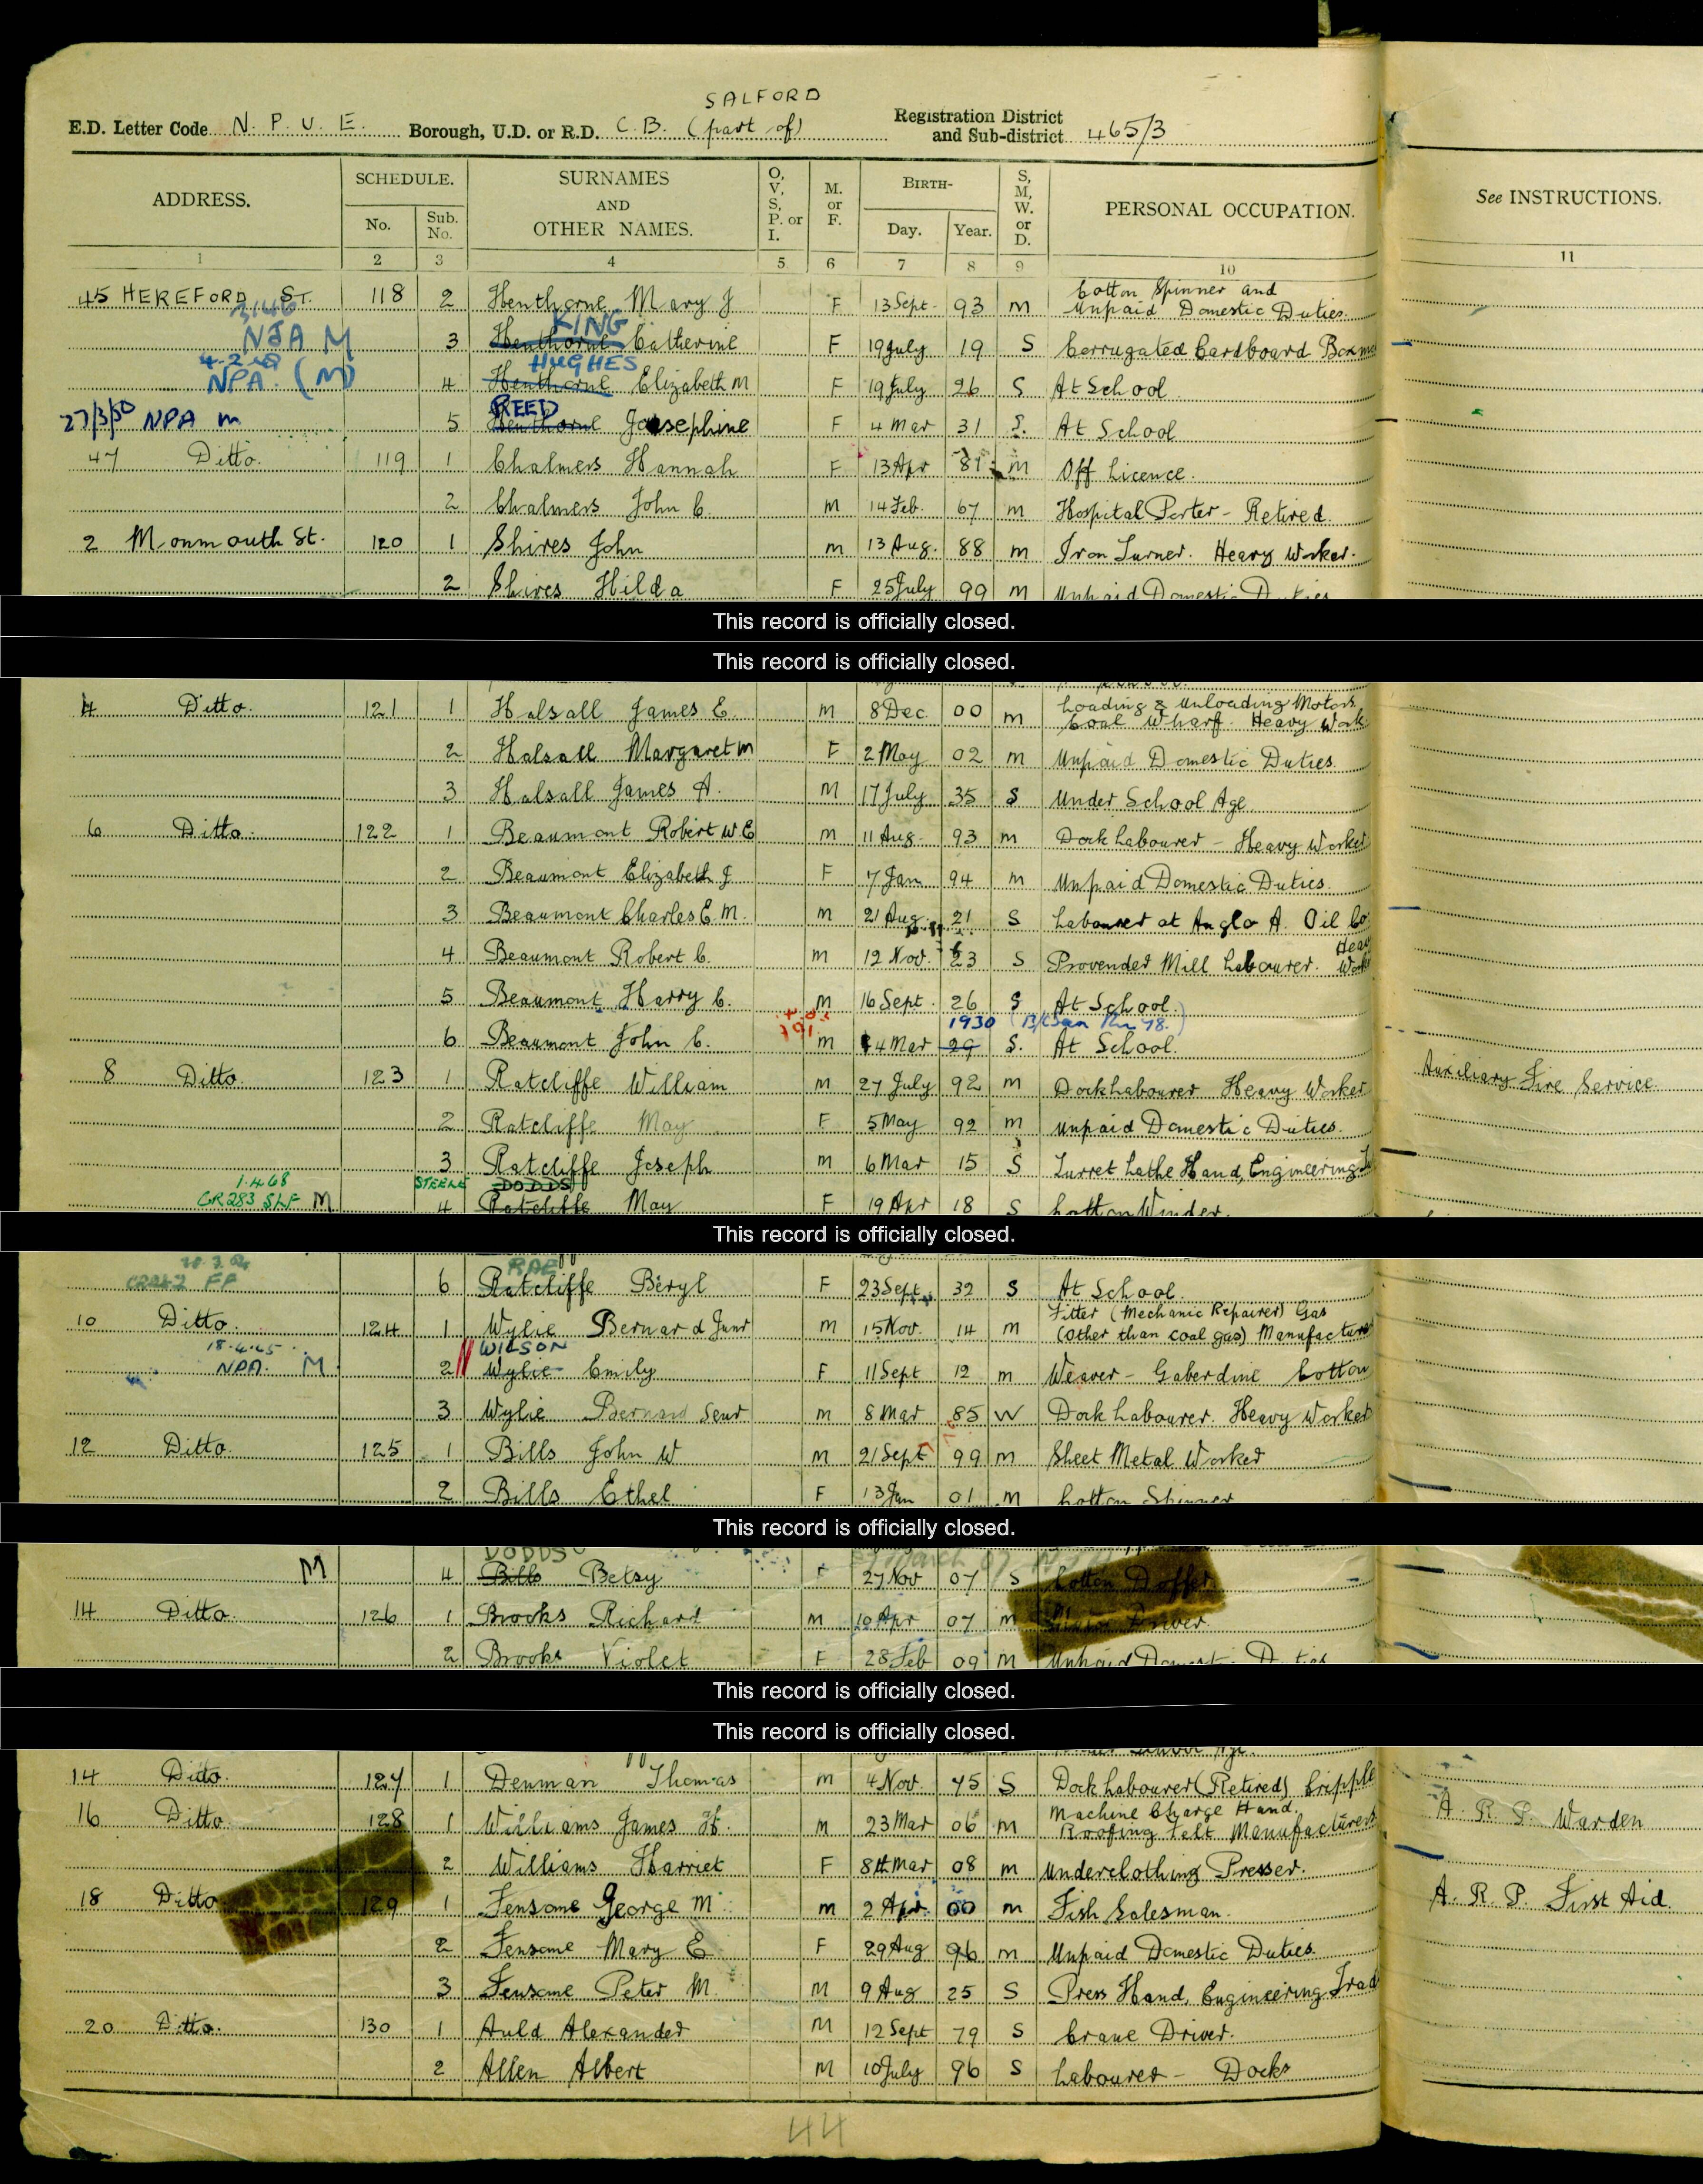 SALFORD
E.D. Letter Code N. P. U. E. Borough, U.D. or R.D. C.B. (part of) Registration District and Sub-district 465/3
ADDRESS. SCHEDULE. No. Sub. No. SURNAMES AND OTHER NAMES. O, V, S, P. or I. M. or F. BIRTH- Day. Year. S, M, W. or D. PERSONAL OCCUPATION. See INSTRUCTIONS.
1 2 3 4 5 6 7 8 9 10 11
45 HEREFORD ST. 118 2 Henthorne Mary J F 13 Sept. 93 M Cotton Spinner and Unpaid Domestic Duties.
KING
NJA M 3 Henthorne Catherine F 19 July 19 S Corrugated Cardboard
HUGHES
4.2.48 NPA. (M) 4 Henthorne Elizabeth M F 19 July 26 S At School
REED
27/3/50 NPA m 5 Henthorne Josephine F 4 Mar 31 S. At School
47 Ditto. 119 1 Chalmers Hannah F 13 Apr 81 M Off Licence.
2 Chalmers John C. M 14 Feb. 67 M Hospital Porter - Retired.
2 Monmouth St. 120 1 Shires John M 13 Aug. 88 M Iron Turner. Heavy Worker.
2 Shires Hilda F 25 July 99 M Unpaid Domestic Duties
This record is officially closed.
This record is officially closed.
4 Ditto. 121 1 Halsall James E. M 8 Dec. 00 M Loading & Unloading Motors. Coal Wharf. Heavy Work
2 Halsall Margaret M F 2 May 02 M Unpaid Domestic Duties
3 Halsall James A. M 17 July 35 S Under School Age
6 Ditto. 122 1 Beaumont Robert W.E M 11 Aug. 93 M Dock Labourer - Heavy Worker
2 Beaumont Elizabeth J F 7 Jan 94 M Unpaid Domestic Duties.
3 Beaumont Charles E.M. M 21 Aug. 21 S Labourer at Anglo A. Oil Co.
4 Beaumont Robert C. M 12 Nov. 23 S Provender Mill Labourer. Heavy Worker
5 Beaumont Harry C. M 16 Sept. 26 S At School
1930
6 Beaumont John C. M 4 Mar 29 S. At School.
8 Ditto. 123 1 Ratcliffe William M 27 July 92 M Dock Labourer Heavy Worker Auxiliary Fire Service
2 Ratcliffe May F 5 May 92 M Unpaid Domestic Duties.
3 Ratcliffe Joseph M 6 Mar 15 S Turret Lathe Hand, Engineering
1.4.68 STEELE DODDS
CR283 SLF M 4 Ratcliffe May F 19 Apr 18 S Cotton Winder.
This record is officially closed.
RAE
6 Ratcliffe Beryl F 23 Sept. 32 S At School
10 Ditto. 124 1 Wylie Bernard Junr M 15 Nov. 14 M Fitter (Mechanic Repairer) Gas (Other than coal gas) Manufacture
18.4.45 WILSON
NPA. M 2 Wylie Emily F 11 Sept 12 M Weaver - Gaberdine Cotton
3 Wylie Bernard Senr M 8 Mar 85 W Dock Labourer. Heavy Worker
12 Ditto. 125 1 Bills John W M 21 Sept 99 M Sheet Metal Worker
2 Bills Ethel F 13 Jan 01 M Cotton Spinner
This record is officially closed.
DODDS
M 4 Bills Betsy F 27 Nov 07 S Cotton Doffer
14 Ditto. 126 1 Brooks Richard M 10 Apr 07 M Driver
2 Brooks Violet F 28 Feb 09 M Unpaid Domestic Duties
This record is officially closed.
This record is officially closed.
14 Ditto. 127 1 Denman Thomas M 4 Nov. 75 S Dock Labourer (Retired) Cripple
16 Ditto. 128 1 Williams James H. M 23 Mar 06 M Machine Charge Hand. Roofing Felt Manufacturers A. R. P. Warden
2 Williams Harriet F 8th Mar 08 M Underclothing Presser.
18 Ditto. 129 1 Fensome George M M 2 Apr. 00 M Fish Salesman. A. R. P. First Aid.
2 Fensome Mary E F 29 Aug 96 M Unpaid Domestic Duties.
3 Fensome Peter M. M 9 Aug 25 S Press Hand, Engineering Trad
20 Ditto. 130 1 Auld Alexander M 12 Sept 79 S Crane Driver.
2 Allen Albert M 10 July 96 S Labourer - Docks
44